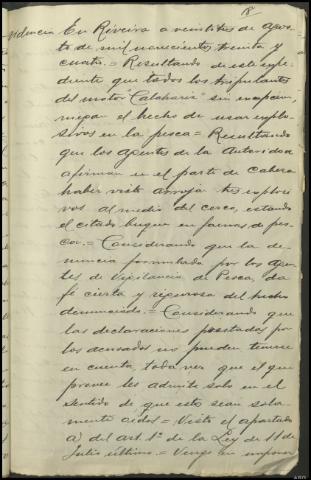 8
videncia En Riveira a veintitres de Agos-
to de mil novecientos treinta y
cuatro.= Resultando de este expe-
diente que todos los tripulantes
del motor "Calaharia" sin excepcion,
niegan el hecho de usar explo-
sivos en la pesca = Resultando
que los Agentes de la Autoridad
afirman en el parte de cabeza
haber visto arrojar tres explosi-
vos al medio del cerco, estando
el citado buque en faenas de pes-
ca.= Considerando que la de-
nuncia formulada por los Agen-
tes de Vigilancia de Pesca, da
fé cierta y rigurosa del hecho
denunciado.= Considerando que
las declaraciones prestadas por
los acusados no pueden tenerse
en cuenta, toda vez que el que
provee les admite solo en el
sentido de que estos sean sola-
mente oidos = Visto el apartado
a) del art. 1º de la Ley de 11 de
Julio último.= Vengo en imponer